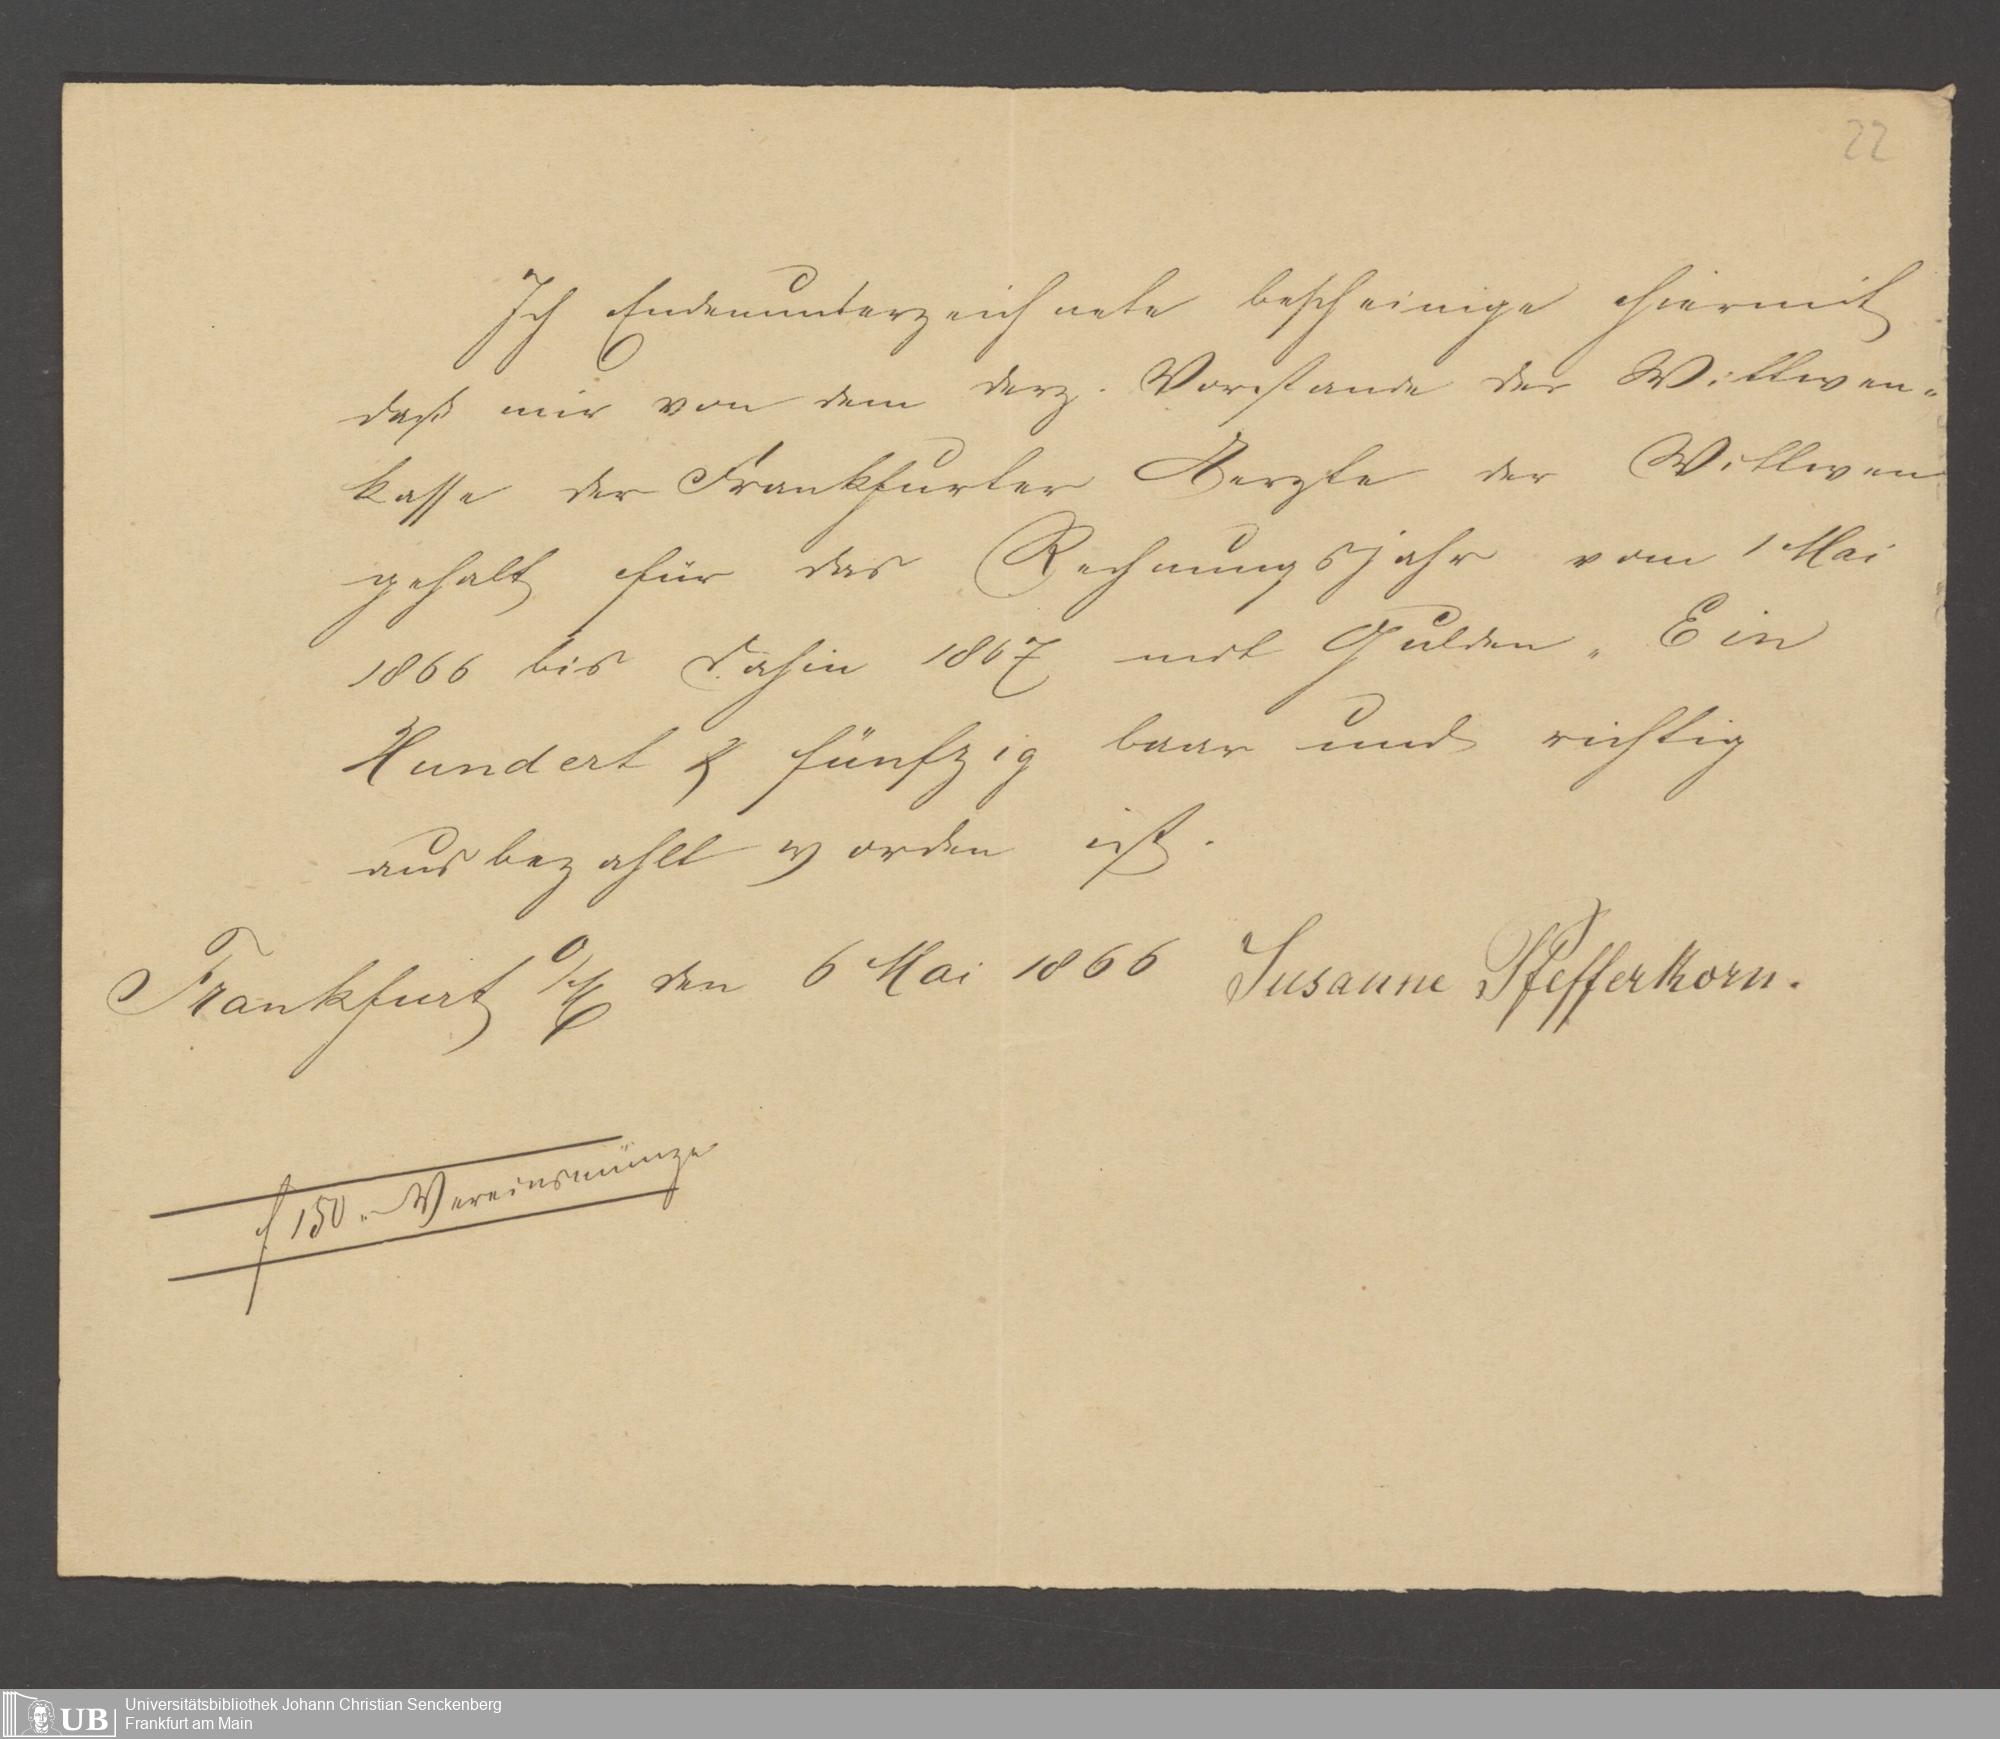 22
Ich Endenunterzeichnete bescheinige hiermit
daß mir von dem derz. Vorstande der Wittwen„
kasse der Frankfurter Aerzte der Wittwen
gehalt für das Rechnungsjahr vom 1 Mai
1866 bis dahin 1867 mit Gulden „ Ein
Hundert & fünfzig baar und richtig
ausbezahlt worden ist.
Frankfurt a/M den 6 Mai 1866 Susanne Pfefferkorn.
f 150 „ Vereinsmünze
UB Universitätsbibliothek Johann Christian Senckenberg
Frankfurt am Main